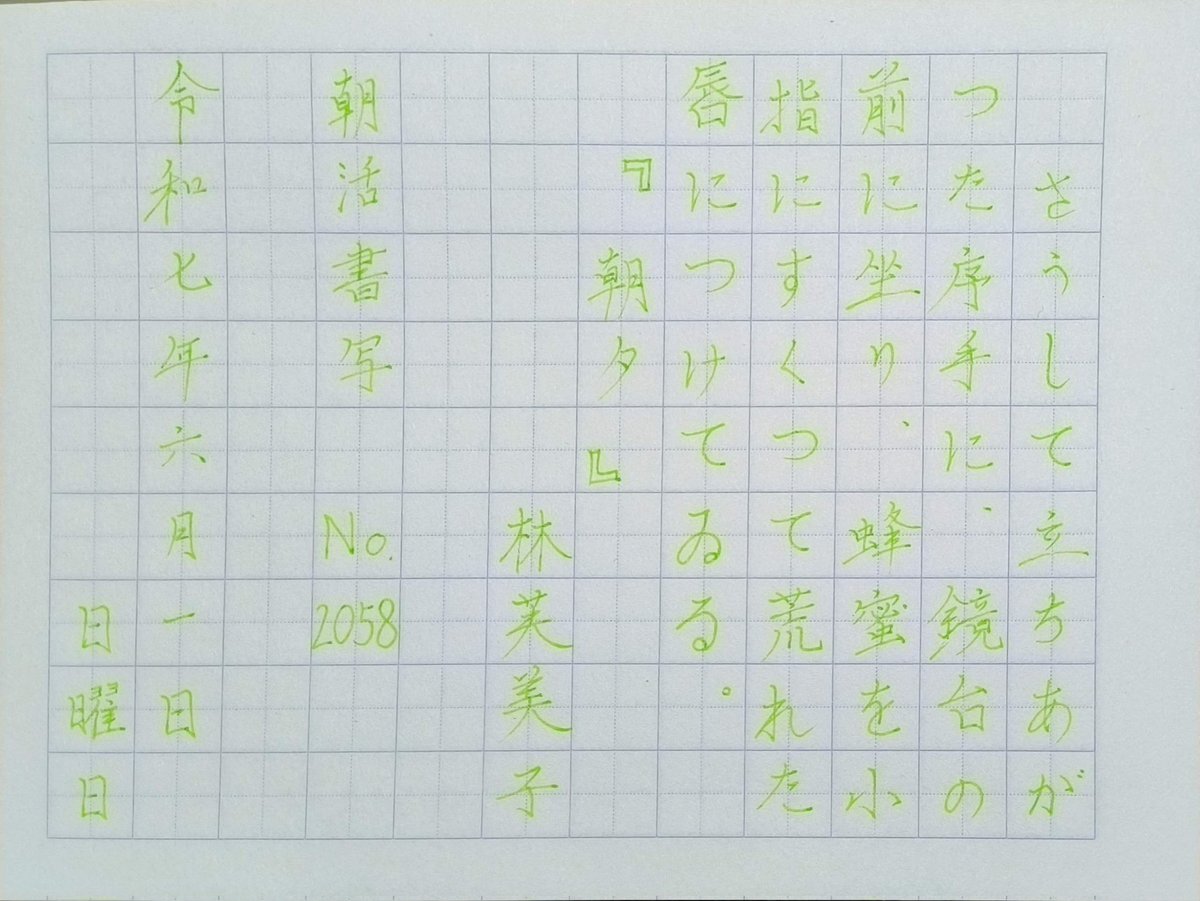 さうして立ちあが
つた序手に、鏡台の
前に坐り、蜂蜜を小
指にすくつて荒れた
唇につけてゐる。
『朝夕』
林芙美子
朝活書写 No. 2058
令和七年六月一日
日曜日